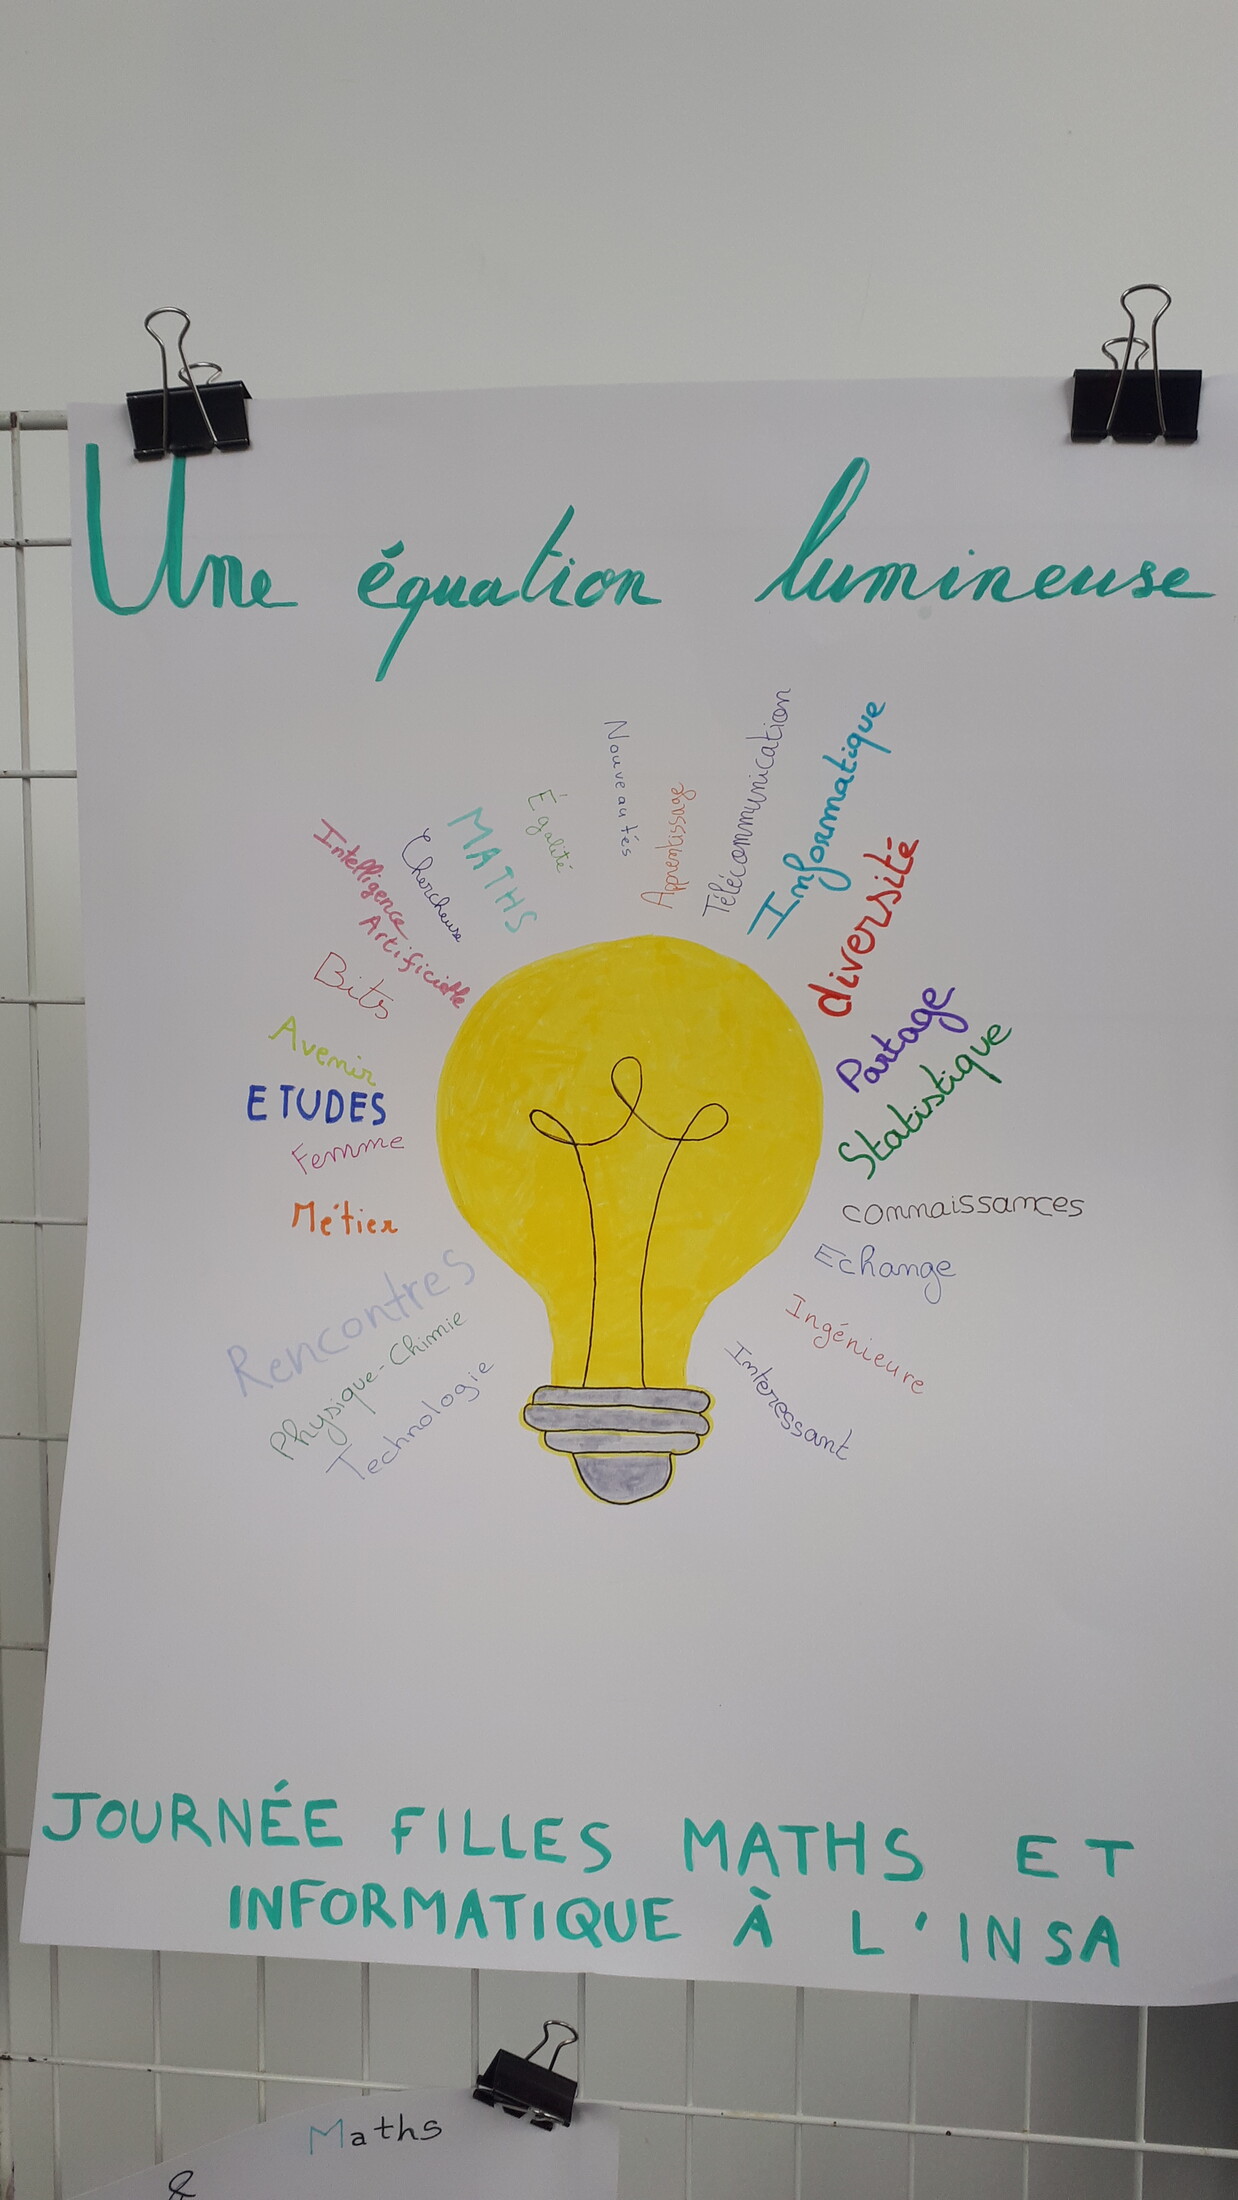 Une équation lumineuse
Nouveautés
Apprentissage
Télécommunication
Informatique
diversité
Partage
Statistique
connaissances
Echange
Ingénieure
Interessant
Égalité
MATHS
Chercheuse
Intelligence
Artificielle
Bits
Avenir
ETUDES
Femme
Métier
Rencontres
Physique-Chimie
Technologie
JOURNÉE FILLES MATHS ET
INFORMATIQUE À L'INSA
Maths
&